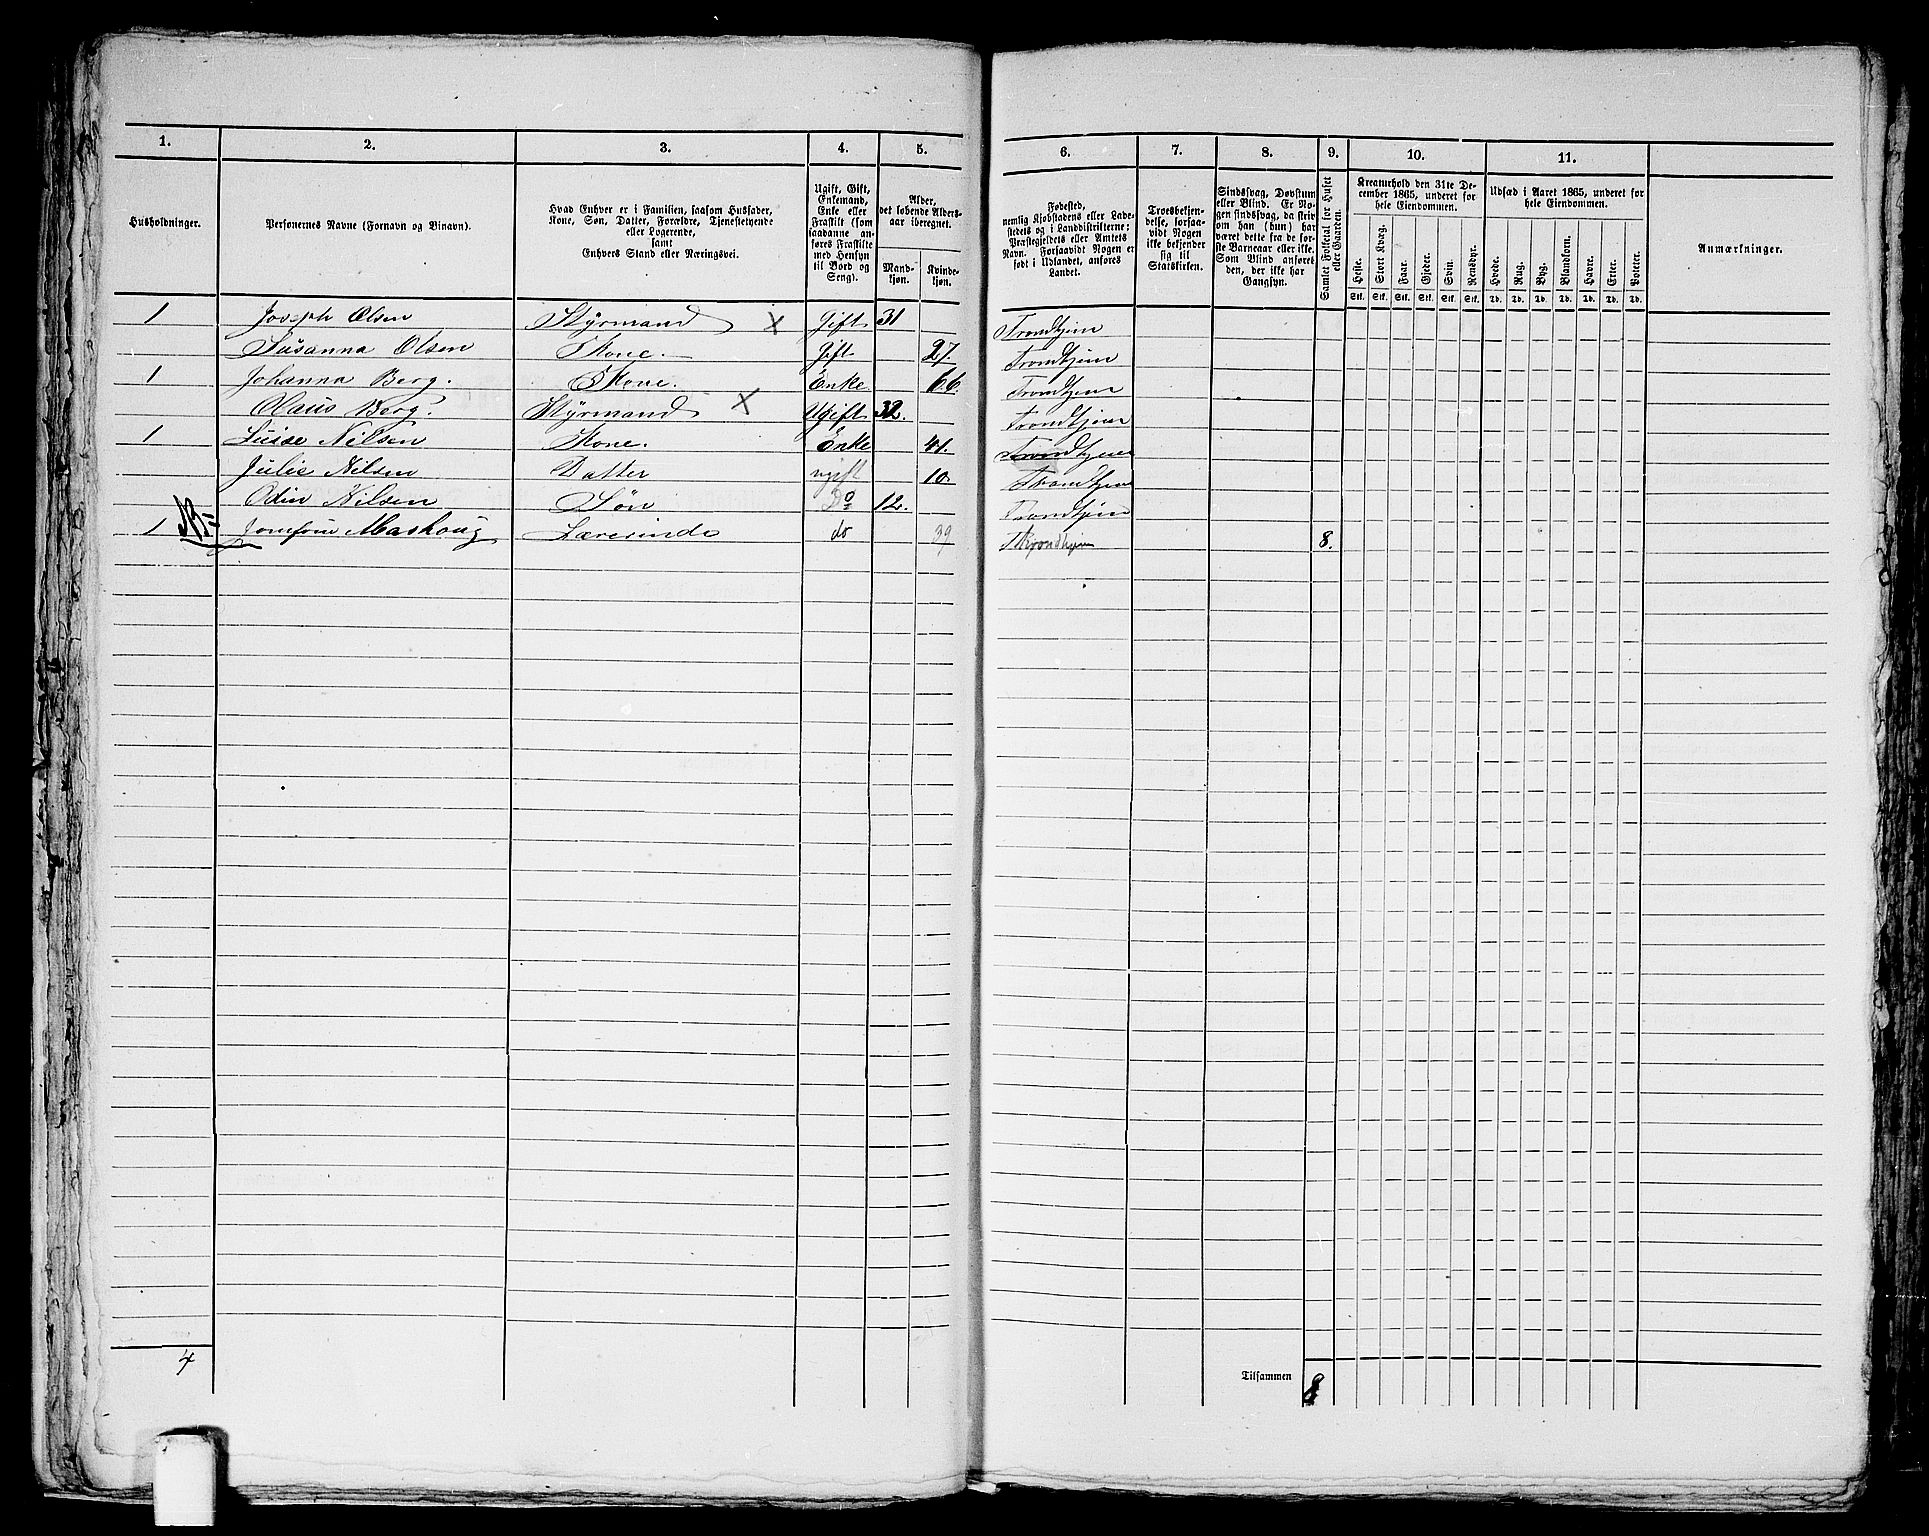 1. 2. 3. 4. 5. 6. 7. 8. 9. 10. 11.
Husholdninger.
Personernes Navne (Fornavn og Binavn).
Hvad Enhver er i Familien, saasom Husfader,
Kone, Søn, Datter, Forældre, Tjenestetyende
eller Logerende,
samt
Enhvers Stand eller Næringsvei.
Ugift, Gift,
Enkemand,
Enke eller
Fraskilt (som
saadanne an-
føres Fraskilte
med Hensyn
til Bord og
Seng).
Alder,
det løbende Alders-
aar iberegnet.
Mand-
kjøn.
Kvinde-
kjøn.
Fødested,
nemlig Kjøbstadens eller Lade-
stedets og i Landdistrikterne:
Præstegjeldets eller Amtets
Navn. Forsaavidt Nogen er
født i Udlandet, anføres
Landet.
Troesbekjen-
delse, forsaa-
vidt Nogen
ikke bekjender
sig til
Statskirken.
Sindssvag, Døvstum
eller Blind. Er No-
gen sindssvag, da skriv
om han (hun) har
været dette fra de før-
ste Barneaar eller ikke.
Som Blind anføres
den, der ikke har
Gangsyn.
Samlet Folketal for Huset
eller Gaarden.
Kreaturhold den 31te De-
cember 1865, underet for
hele Eiendommen.
Heste. Stort Kvæg. Faar. Gjeder. Svin. Rensdyr.
Stk. Stk. Stk. Stk. Stk. Stk.
Udsæd i Aaret 1865, underet for
hele Eiendommen.
Hvede. Rug. Byg. Blandkorn. Havre. Erter. Poteter.
Td. Td. Td. Td. Td. Td. Td.
Anmærkninger.
1 Joseph Olsen Styrmand X Gift 31 Trondhjem
Susanna Olsen Kone. Gift 27. Trondhjem
1 Johanna Berg. Kone. Enke 66. Trondhjem
Olaus Berg. Styrmand X Ugift 32. Trondhjem
1 Luise Nilsen Kone. Enke 41. Trondhjem
Julie Nilsen Datter ugift 10 Trondhjem
Odin Nilsen Søn Do 12. Trondhjem
1 NB Lærerinde do 39 Trondhjem 8.
4 Tilsammen 8